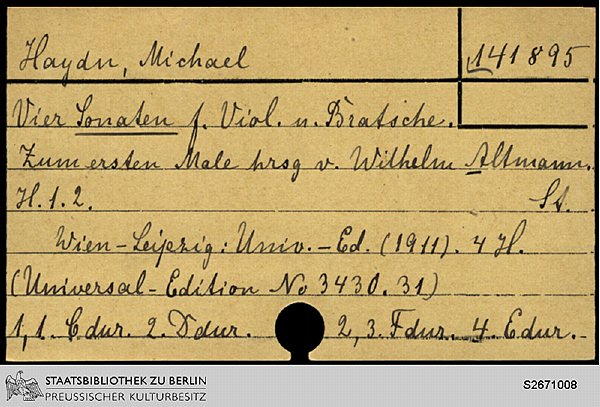 Haydn, Michael
141895
Vier Sonaten f. Viol. u. Bratsche.
Zum ersten Male hrsg v. Wilhelm Altmann.
H. 1. 2. St.
Wien-Leipzig: Univ.-Ed. (1911). 4 H.
(Universal-Edition No 3430. 31)
1,1. Cdur. 2. Ddur. 2,3. Fdur. 4. Edur.
STAATSBIBLIOTHEK ZU BERLIN
PREUSSISCHER KULTURBESITZ
S2671008